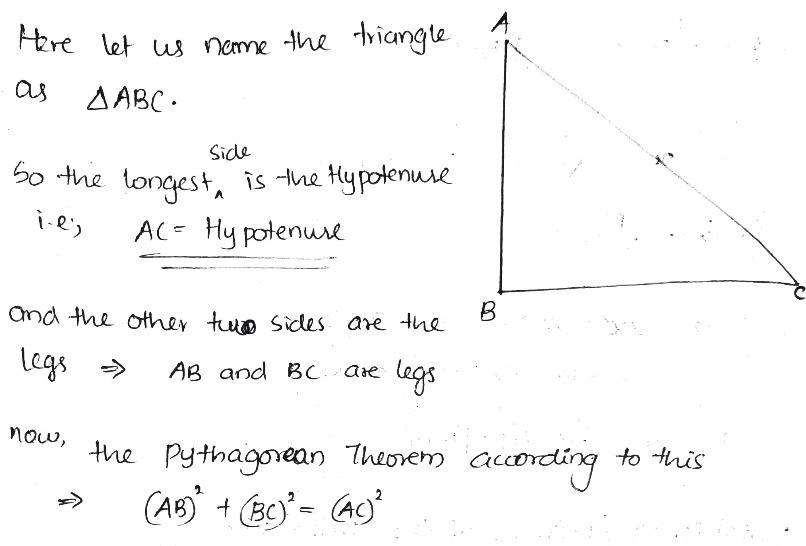 Here let us name the triangle
as △ABC.
So the longest side is the Hypotenuse
i.e., AC = Hypotenuse
and the other two sides are the
legs ⇒ AB and BC are legs
now, the Pythagorean Theorem according to this
⇒ (AB)² + (BC)² = (AC)²
A
B
C